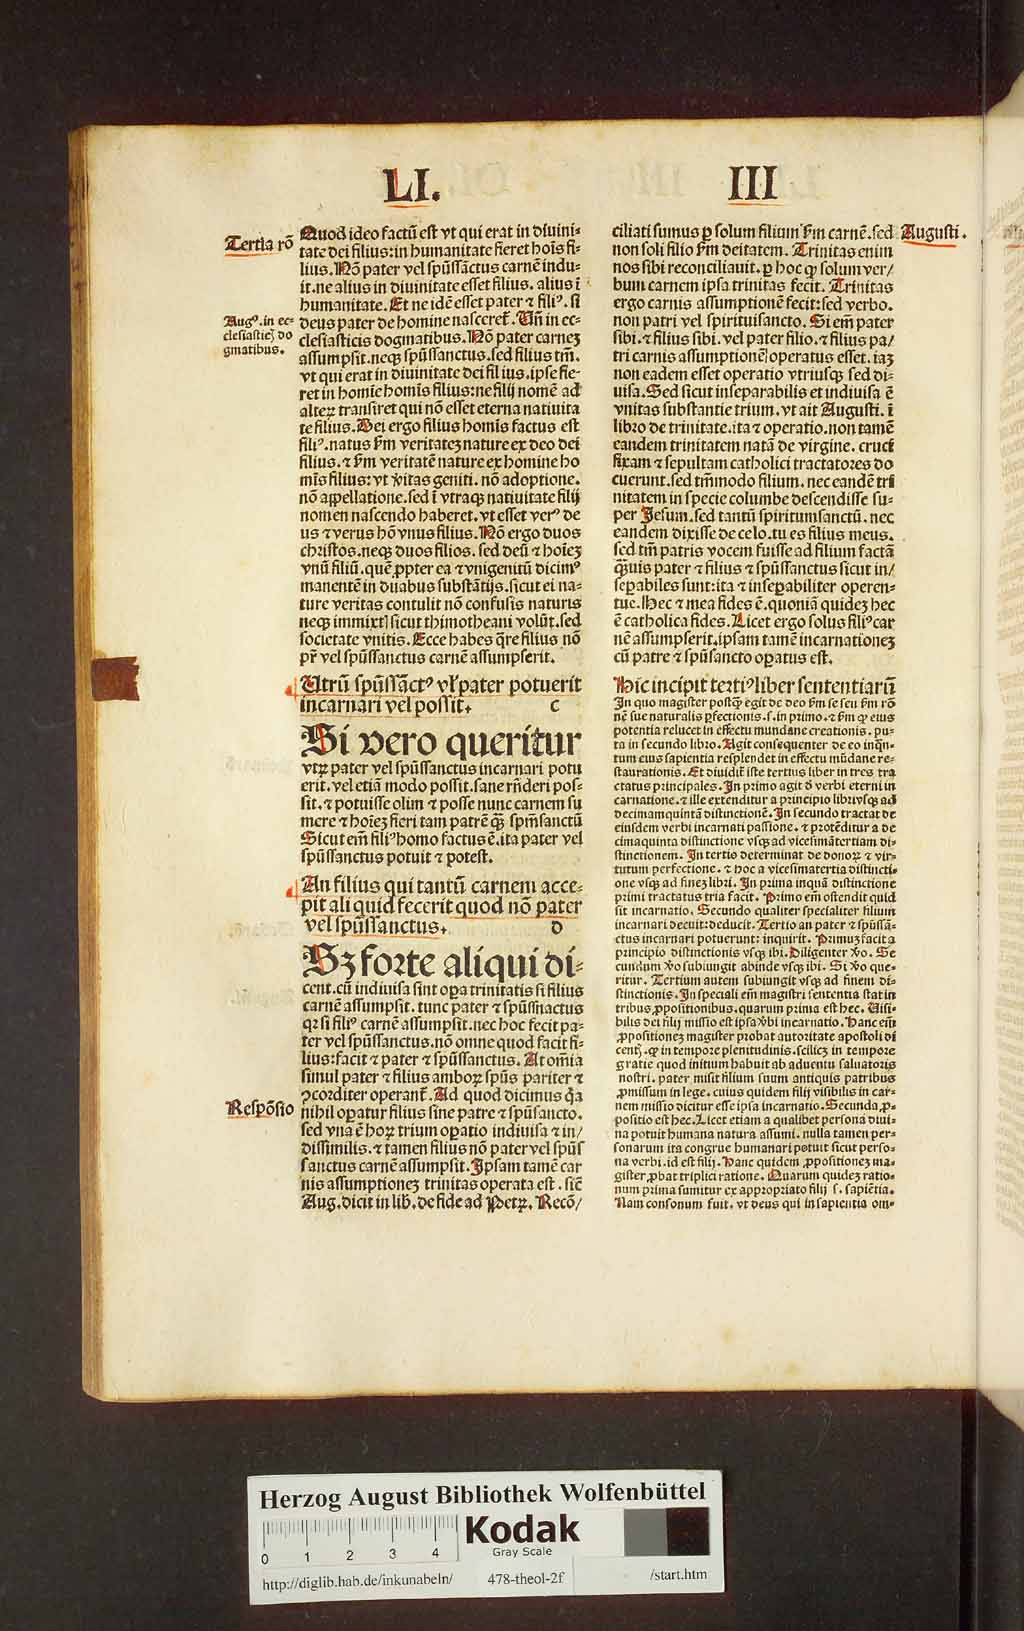 LI.
III
Tertia rõ
Augꝰ. in ec=
clesiasticꝭ do
gmatibus.
Respõsio
Quod ideo factũ est vt qui erat in diuini=
tate dei filius: in humanitate fieret hoĩs fi=
lius. Nõ pater vel spũssãctus carnẽ indu=
it. ne alius in diuinitate esset filius. alius ĩ
humanitate. Et ne idẽ esset pater ⁊ filiꝰ. si
deus pater de homine nasceret̃. Uñ in ec=
clesiasticis dogmatibus. Nõ pater carneꝫ
assumpsit. neqꝫ spũssanctus. sed filius tm̃.
vt qui erat in diuinitate dei filius. ipse fie=
ret in homĩe homĩs filius: ne filij nomẽ ad
alteꝝ transiret qui nõ esset eterna natiuita
te filius. Dei ergo filius homĩs factus est
filiꝰ. natus ẜm veritateꝫ nature ex deo dei
filius. ⁊ ẜm veritatẽ nature ex homine ho
mĩs filius: vt ṽitas geniti. nõ adoptione.
nõ appellatione. sed ĩ vtraqꝫ natiuitate filij
nomen nascendo haberet. vt esset verꝰ de
us ⁊ verus hõ vnus filius. Nõ ergo duos
christos. neqꝫ duos filios. sed deũ ⁊ hoĩeꝫ
vnũ filiũ. quẽ ꝓpter ea ⁊ vnigenitũ dicimꝰ
manentẽ in duabus substãtijs. sicut ei na=
ture veritas contulit nõ confusis naturis
neqꝫ immixt] sicut thimotheani volũt. sed
societate vnitis. Ecce habes q̃re filius nõ
pr̃ vel spũssanctus carnẽ assumpserit.
Utrũ spũssãctꝰ vl̓ pater potuerit
incarnari vel possit. C
Si vero queritur
vtꝝ pater vel spũssanctus incarnari potu
erit. vel etiã modo possit. sane rñderi pos=
sit. ⁊ potuisse olim ⁊ posse nunc carnem su
mere ⁊ hoĩeꝫ fieri tam patrẽ q̃ꝫ spm̃sanctũ
Sicut em̃ filiꝰ homo factus ẽ. ita pater vel
spũssanctus potuit ⁊ potest.
An filius qui tantũ carnem acce=
pit aliquid fecerit quod nõ pater
vel spũssanctus. D
Sꝫ forte aliqui di=
cent. cũ indiuisa sint oꝑa trinitatis si filius
carnẽ assumpsit. tunc pater ⁊ spũssnactus
qꝛ si filiꝰ carnẽ assumpsit. nec hoc fecit pa=
ter vel spũssanctus. nõ omne quod facit fi=
lius: facit ⁊ pater ⁊ spũssanctus. At om̃ia
simul pater ⁊ filius amboꝝ spũs pariter ⁊
ꝯcorditer operant̃. Ad quod dicimus q̃a
nihil oꝑatur filius sine patre ⁊ spũsancto.
sed vna ẽ hoꝝ trium oꝑatio indiuisa ⁊ in/
dissimilis. ⁊ tamen filius nõ pater vel spũs
sanctus carnẽ assumpsit. Ipsam tamẽ car
nis assumptioneꝫ trinitas operata est. sic̃
Aug. dicit in lib. de fide ad Petꝝ. Recõ/
Augusti.
ciliati sumus ꝑ solum filium ẜm carnẽ. sed
non soli filio ẜm deitatem. Trinitas enim
nos sibi reconciliauit. ꝑ hoc ꝙ solum ver/
bum carnem ipsa trinitas fecit. Trinitas
ergo carnis assumptionẽ fecit: sed verbo.
non patri vel spirituisancto. Si em̃ pater
sibi. ⁊ filius sibi. vel pater filio. ⁊ filius pa/
tri carnis assumptionẽ operatus esset. iaꝫ
non eadem esset operatio vtriusqꝫ sed di=
uisa. Sed sicut inseparabilis et indiuisa ẽ
vnitas substantie trium. vt ait Augusti. ĩ
libro de trinitate. ita ⁊ operatio. non tamẽ
eandem trinitatem natã de virgine. cruci
fixam ⁊ sepultam catholici tractatores do
cuerunt. sed tm̃modo filium. nec eandẽ tri
nitatem in specie columbe descendisse su=
per Jesum. sed tantũ spiritumsanctũ. nec
eandem dixisse de celo. tu es filius meus.
sed tm̃ patris vocem fuisse ad filium factã
q̃uis pater ⁊ filius ⁊ spũssanctus sicut in/
seꝑabiles sunt: ita ⁊ inseꝑabiliter operen=
tur. Hec ⁊ mea fides ẽ. quoniã quideꝫ hec
ẽ catholica fides. Licet ergo solus filiꝰ car
nẽ assumpserit. ipsam tamẽ incarnationeꝫ
cũ patre ⁊ spũsancto oꝑatus est.
Hic incipit tertiꝰ liber sententiarũ
In quo magister postq̃ꝫ egit de deo ẜm se seu ẜm rõ
nẽ sue naturalis ꝑfectionis. s. in primo. ⁊ ẜm ꝙ eius
potentia relucet in effectu mundane creationis. pu=
ta in secundo libro. Agit consequenter de eo inq̃n=
tum eius sapientia resplendet in effectu mũdane re=
staurationis. Et diuidit̃ iste tertius liber in tres tra
ctatus principales. In primo agit ð verbi eterni in
carnatione. ⁊ ille extenditur a principio libri vsqꝫ ad
decimamquintã distinctionẽ. In secundo tractat de
eiusdem verbi incarnati passione. ⁊ protẽditur a de
cimaquinta distinctione vsqꝫ ad vicesimãtertiam di=
stinctionem. In tertio determinat de donoꝝ ⁊ vir=
tutum perfectione. ⁊ hoc a vicesimatertia distincti=
one vsqꝫ ad fineꝫ libri. In prima inquã distinctione
primi tractatus tria facit. Primo em̃ ostendit quid
sit incarnatio. Secundo qualiter specialiter filium
incarnari decuit: deducit. Tertio an pater ⁊ spũssã=
ctus incarnari potuerunt: inquirit. Primuꝫ facit a
principio distinctionis vsqꝫ ibi. Diligenter ṽo. Se
cundum ṽo subiungit abinde vsqꝫ ibi. Si ṽo que=
ritur. Tertium autem subiungit vsqꝫ ad finem di=
stinctionis. In speciali em̃ magistri sententia stat in
tribus ꝓpositionibus. quarum prima est hec. Uisi=
bilis dei filij missio est ipsa ṽbi incarnatio. Hanc em̃
ꝓpositioneꝫ magister probat autoritate apostoli di
cent]. ꝙ in tempore plenitudinis. scilicꝫ in tempore
gratie quod initium habuit ab aduentu saluatoris
nostri. pater misit filium suum antiquis patribus
ꝓmissum in lege. cuius quidem filij visibilis in car=
nem missio dicitur esse ipsa incarnatio. Secunda ꝓ=
positio est hec. Licet etiam a qualibet persona diui=
na potuit humana natura assumi. nulla tamen per=
sonarum ita congrue humanari potuit sicut perso=
na verbi. id est filij. Hanc quidem ꝓpositioneꝫ ma=
gister ꝓbat triplici ratione. Quarum quideꝫ ratio=
num prima sumitur ex appropriato filij s. sapiẽtia.
Nam consonum fuit. vt deus qui in sapientia om=
Herzog August Bibliothek Wolfenbüttel
0 1 2 3 4
Kodak
Gray Scale
http://diglib.hab.de/inkunabeln/ 478-theol-2f /start.htm